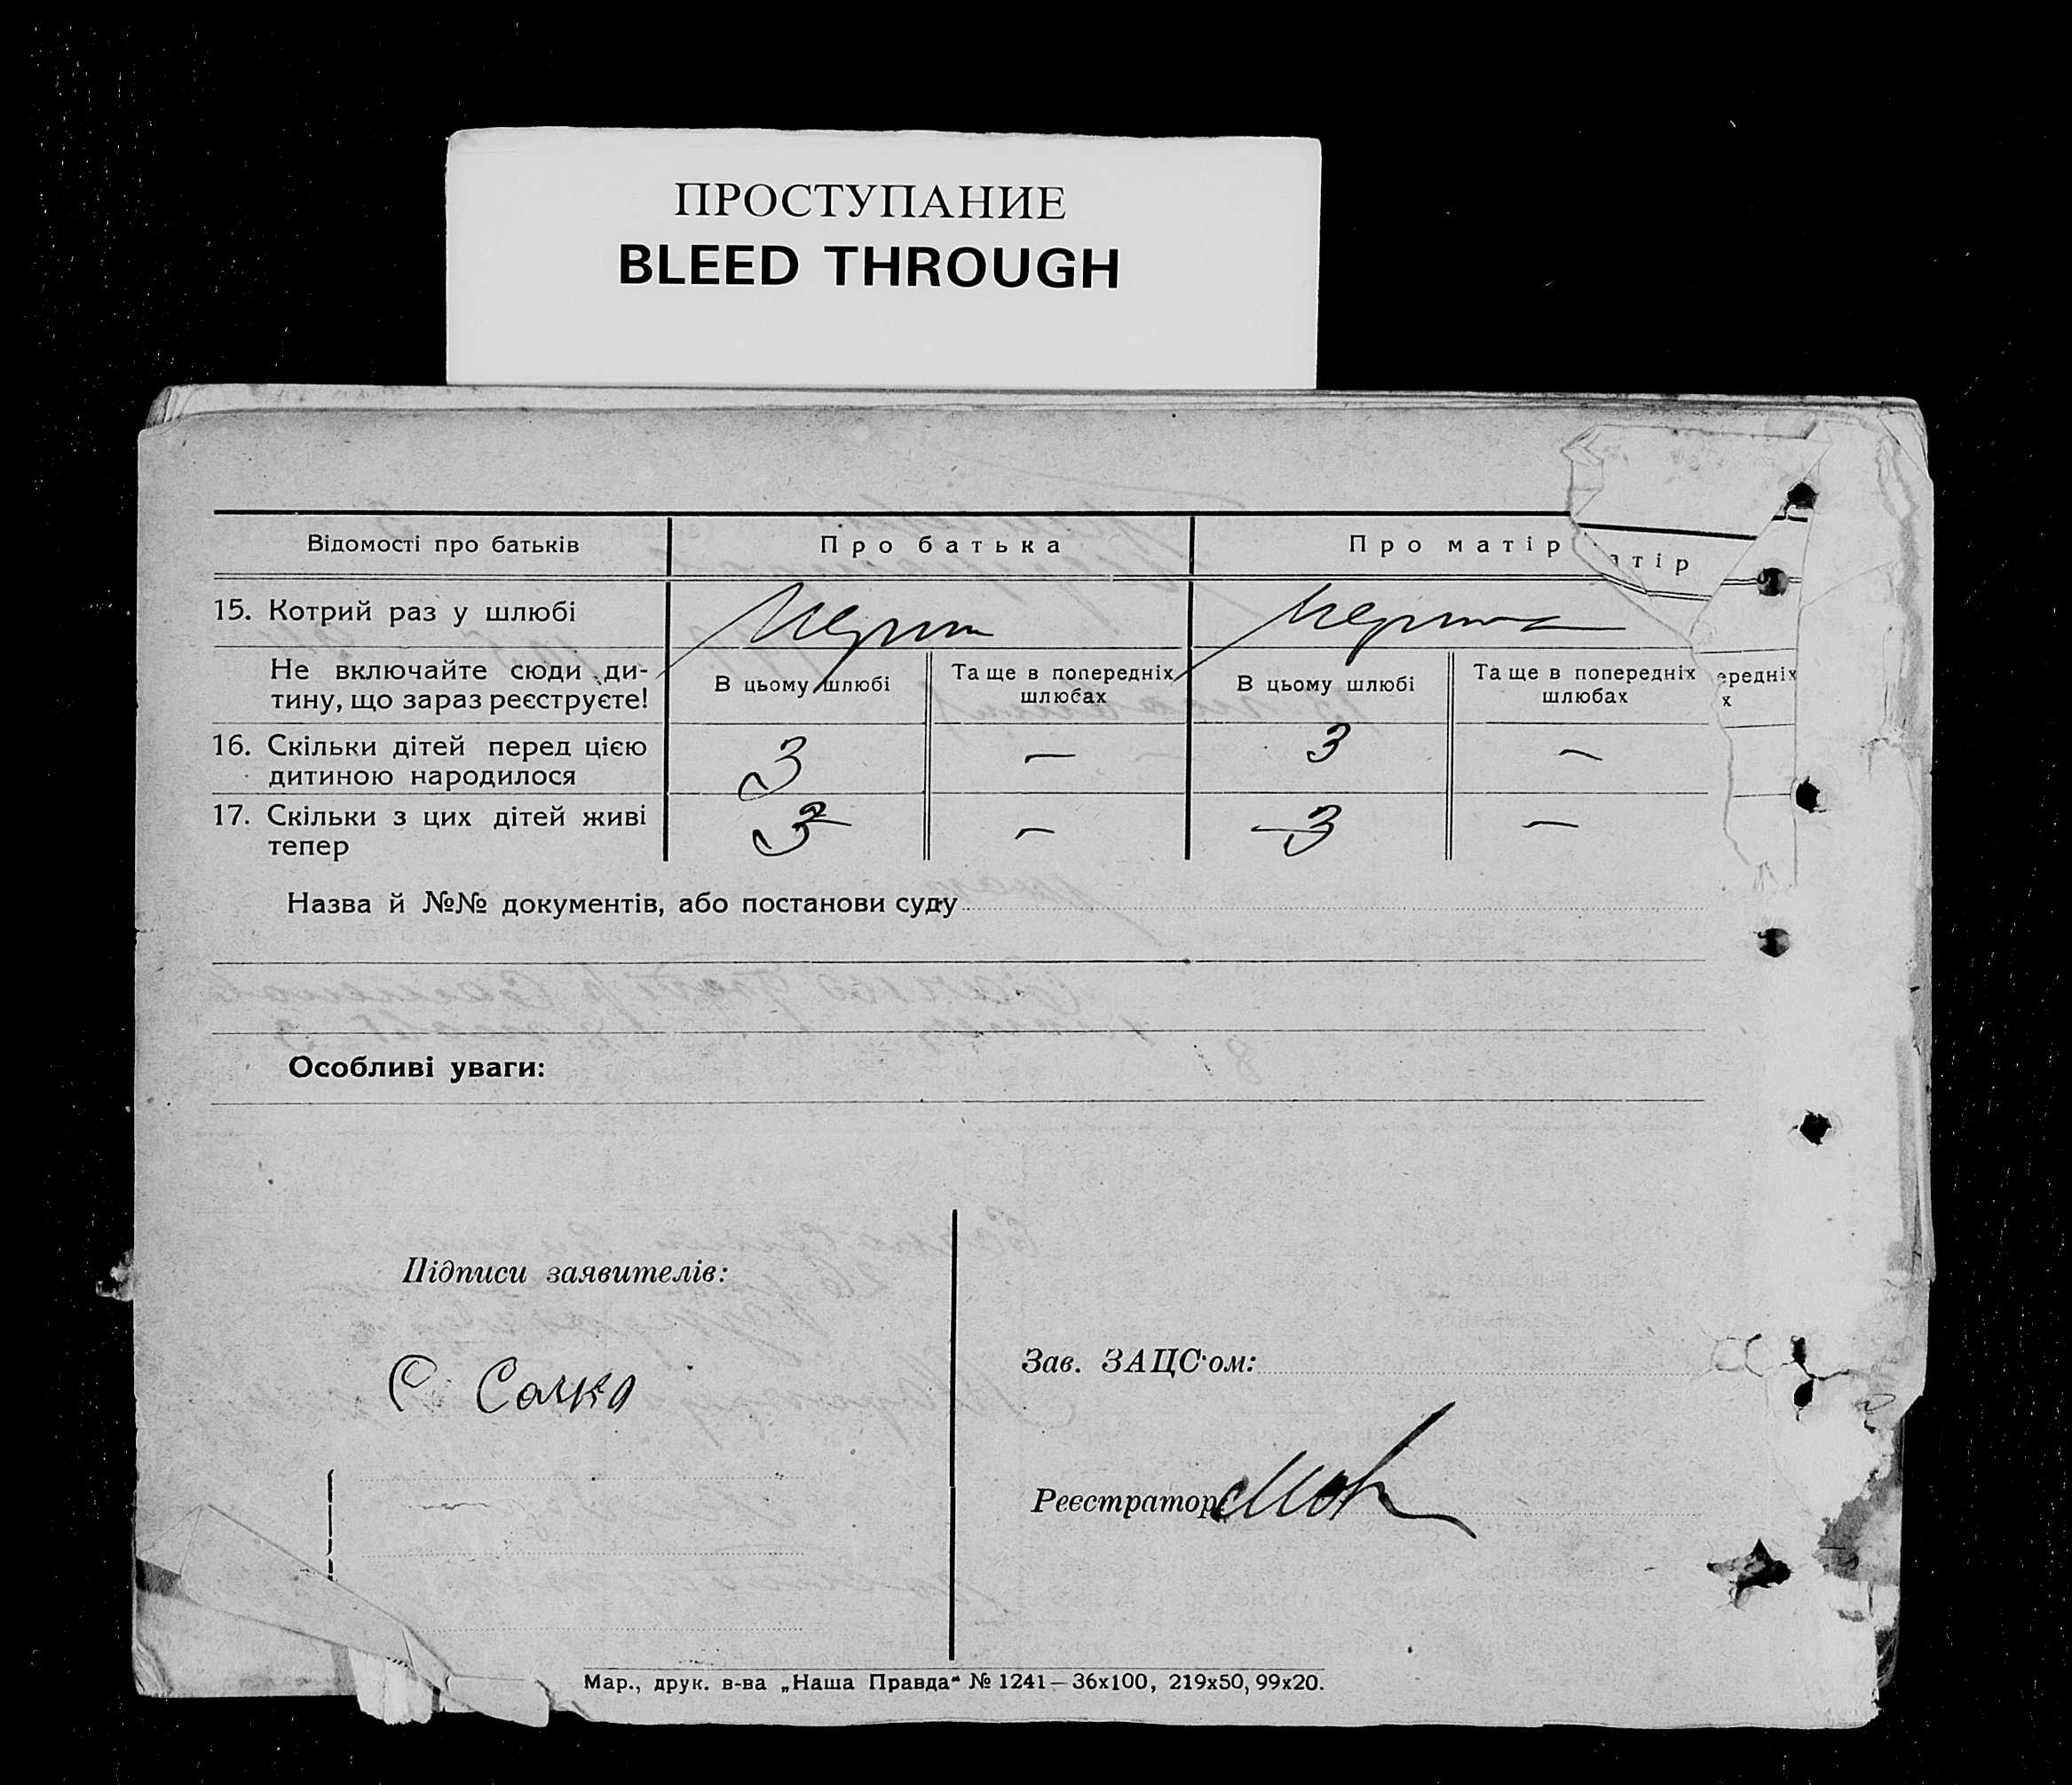 ПРОСТУПАНИЕ
BLEED THROUGH
Відомості про батьків Про батька Про матір
атір
15. Котрий раз у шлюбі
Не включайте сюди ди-
тину, що зараз реєструєте!
В цьому шлюбі Та ще в попередніх шлюбах В цьому шлюбі Та ще в попередніх шлюбах
ередніх
х
16. Скільки дітей перед цією
дитиною народилося 3 — 3 —
17. Скільки з цих дітей живі
тепер 3 — 3 —
Назва й №№ документів, або постанови суду
Особливі уваги:
Підписи заявителів:
Зав. ЗАЦС'ом:
Реєстратор
Мар., друк. в-ва „Наша Правда“ № 1241—36х100, 219х50, 99х20.